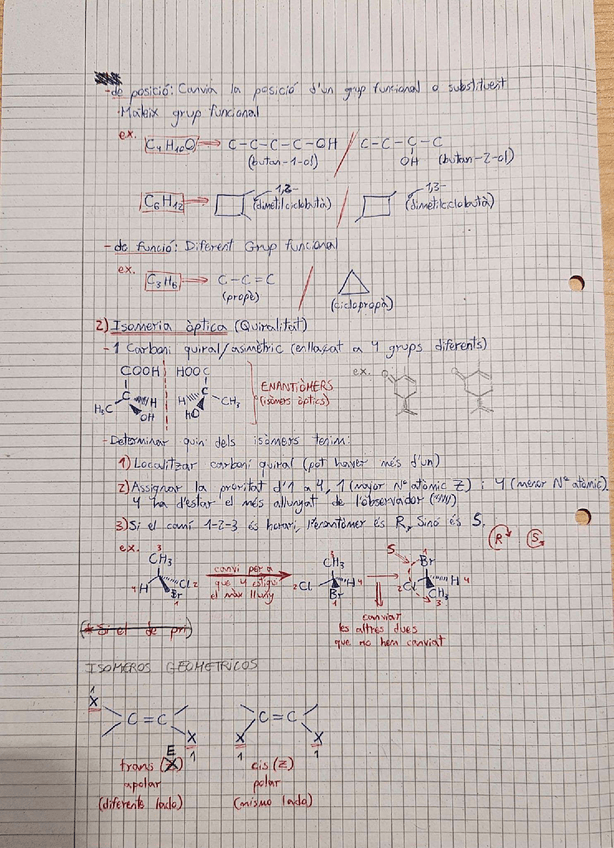 -de posició: Canvia la posició d'un grup funcional o substituent
Mateix grup funcional
ex. C₄H₁₀O → C-C-C-C-OH / C-C-C-C
OH
(butan-1-ol) (butan-2-ol)
C₆H₁₂ → 1,2- (dimetilciclobutà) / 1,3- (dimetilciclobutà)
- de funció: Diferent Grup funcional
ex. C₃H₆ → C-C=C /
(propè) (ciclopropà)
2) Isomeria òptica (Quiralitat)
- 1 Carboni quiral/asmètric (enllaçat a 4 grups diferents)
COOH HOOC ex. O
C H H₃C OH H C CH₃ HO ENANTIÒMERS
(isòmers òptics)
-Determinar quin dels isòmers tenim:
1) Localitzar carboni quiral (pot haver més d'un)
2) Assignar la prioritat d'1 a 4, 1 (major Nº atòmic Z) i 4 (menor Nº atòmic).
4 ha d'estar el més allunyat de l'observador
3) Si el camí 1-2-3 és horari, l'enantòmer és R, Sinó és S.
R S
ex. 3 CH₃ 4 H Cl 2 Br 1
canvi per a
que 4 estigui
el màx lluny
3 CH₃ 2 Cl H 4 Br 1
S 1 Br 2 Cl H 4 CH₃ 3
canviar
les altres dues
que no hem canviat
(* Si el de pri)
ISOMEROS GEOMETRICOS
1 X C=C X 1
X 1 C=C X 1
trans (E) cis (Z)
apolar polar
(diferents lado) (mismo lado)